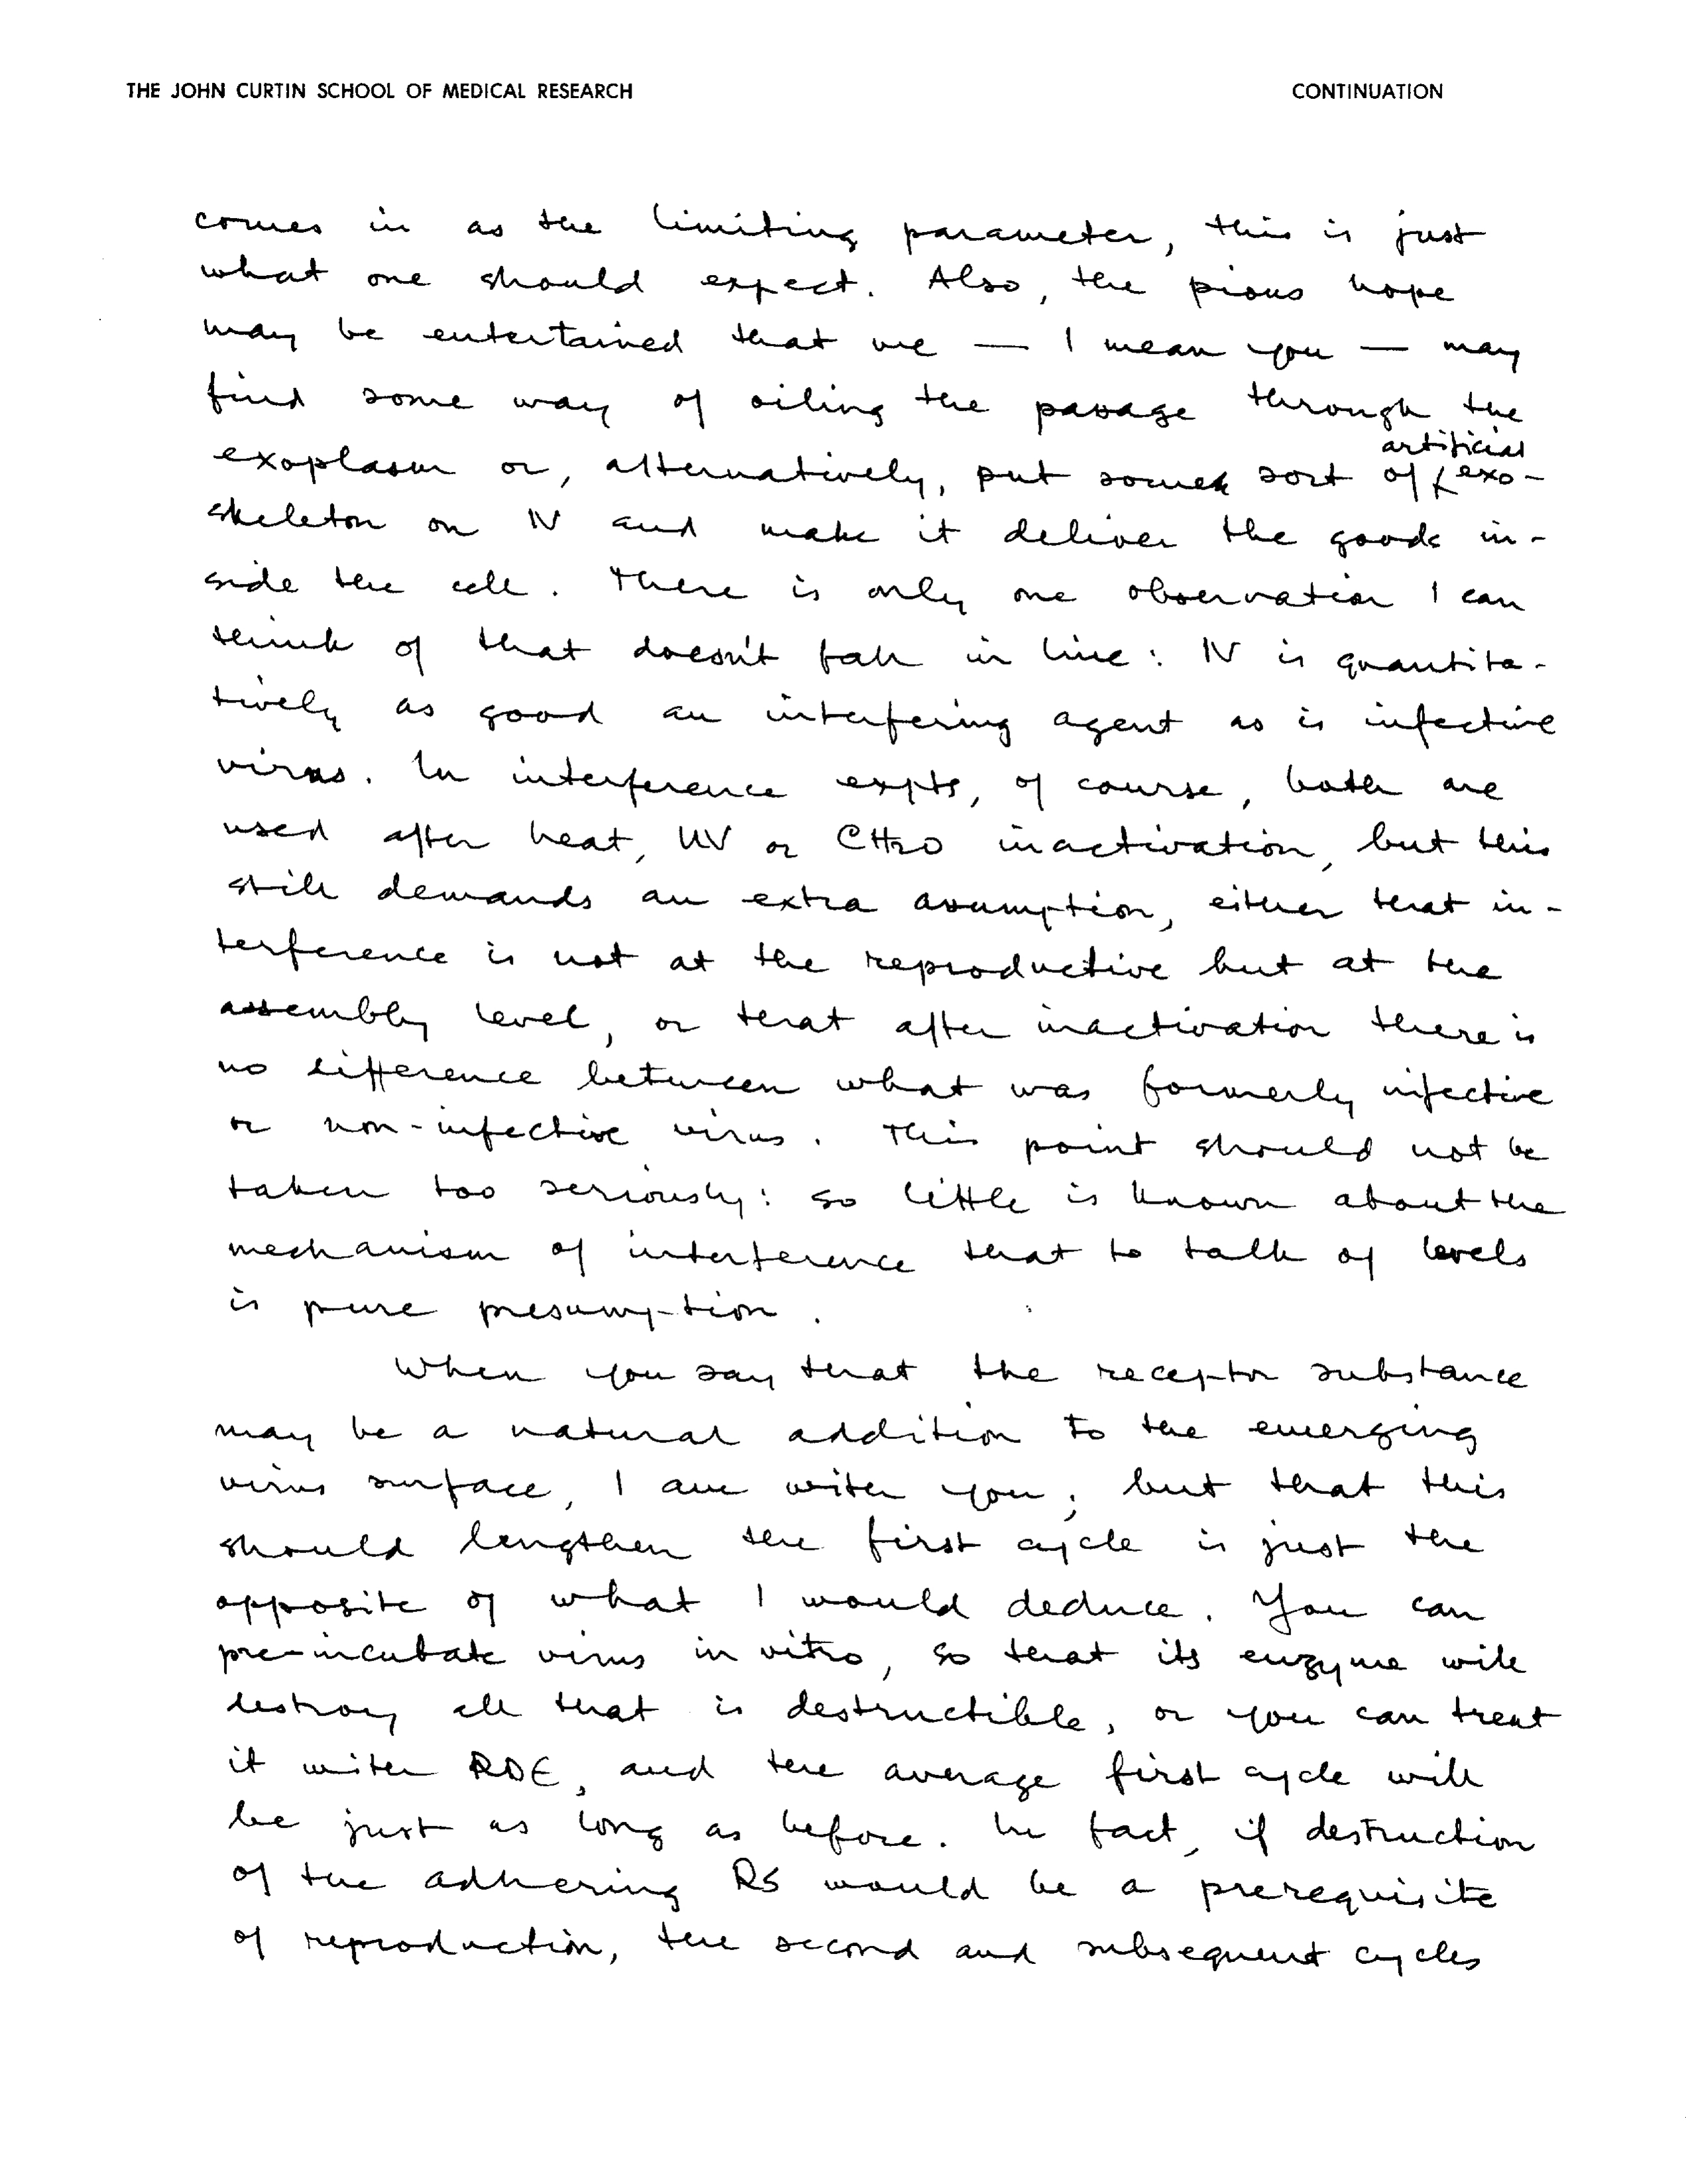 THE JOHN CURTIN SCHOOL OF MEDICAL RESEARCH CONTINUATION
comes in as the limiting parameter, this is just
what one should expect. Also, the pious hope
may be entertained that we — I mean you — may
find some way of oiling the passage through the
exoplasm or, alternatively, put some sort of artificial exo-
skeleton on IV and make it deliver the goods in-
side the cell. There is only one observation I can
think of that doesn't fall in line: IV is quantita-
tively as good an interfering agent as is infective
virus. In interference expts, of course, both are
used after heat, UV or CH2O inactivation, but this
still demands an extra assumption, either that in-
terference is not at the reproductive but at the
assembly level, or that after inactivation there is
no difference between what was formerly infective
or non-infective virus. This point should not be
taken too seriously: so little is known about the
mechanism of interference that to talk of levels
is pure presumption.
When you say that the receptor substance
may be a natural addition to the emerging
virus surface, I am with you; but that this
should lengthen the first cycle is just the
opposite of what I would deduce. You can
pre-incubate virus in vitro, so that its enzyme will
destroy all that is destructible, or you can treat
it with RDE, and the average first cycle will
be just as long as before. In fact, if destruction
of the adhering RS would be a prerequisite
of reproduction, the second and subsequent cycles